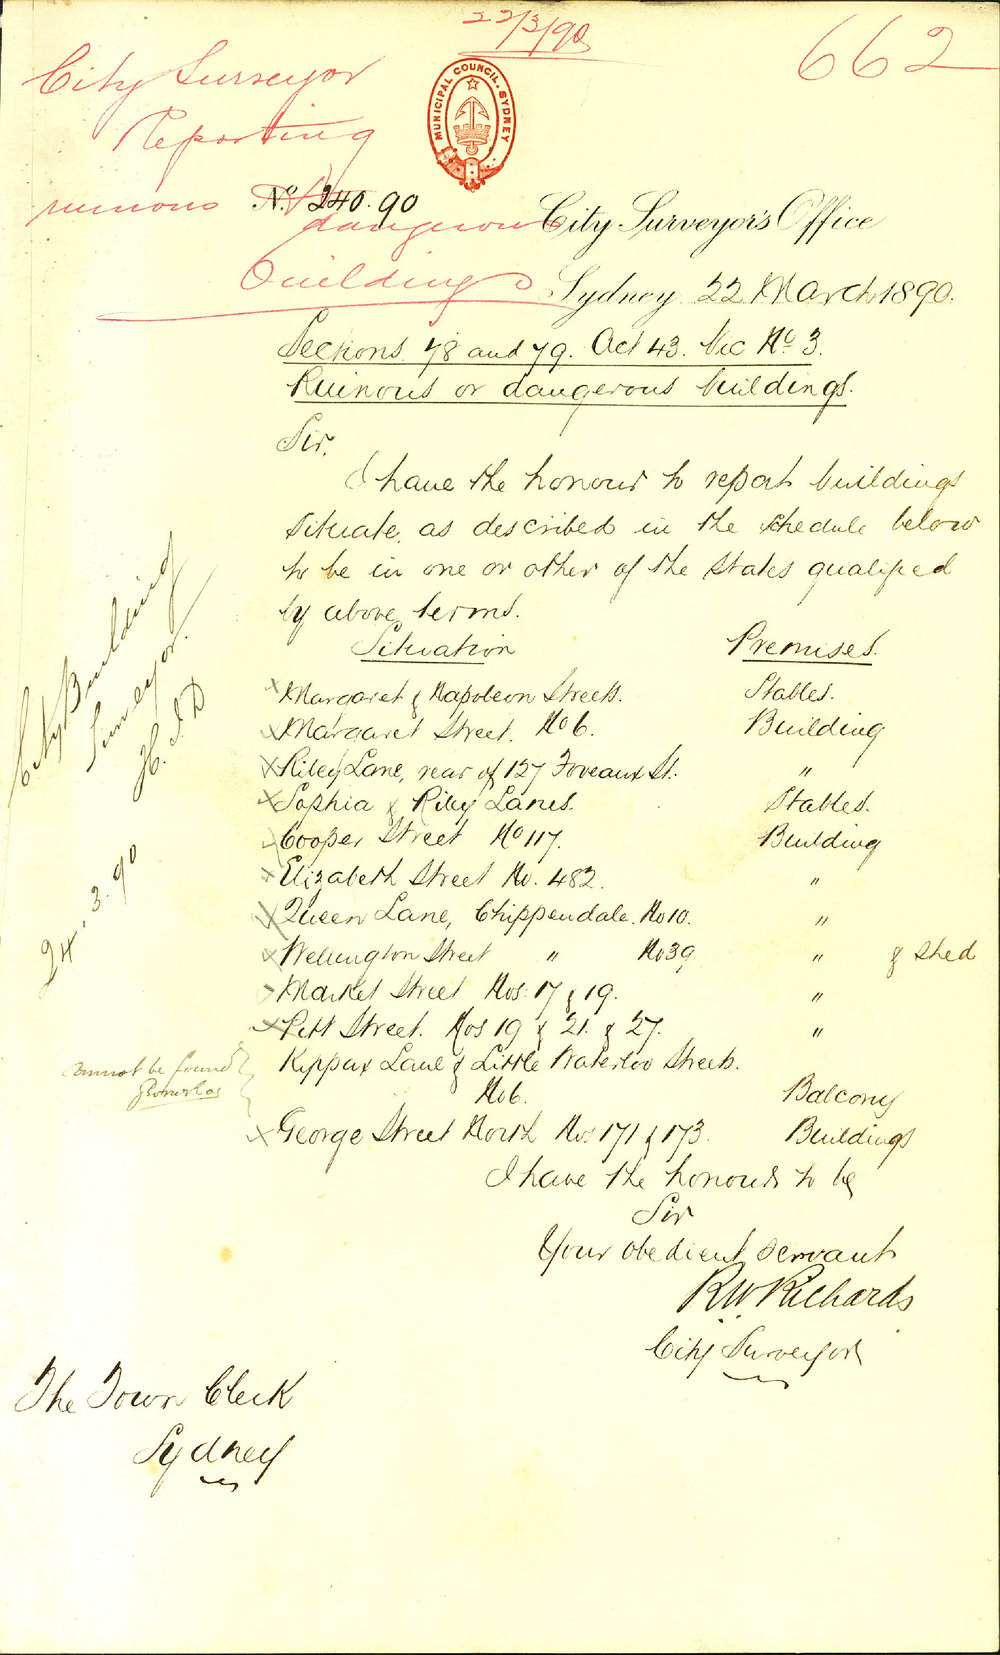 22/3/90
662
City Surveyor
Reporting
ruinous or
dangerous
Buildings
MUNICIPAL COUNCIL. SYDNEY
No. 240.90
City Surveyor's Office
Sydney 22 March 1890.
Sections 78 and 79. Act 43. Vic No 3.
Ruinous or dangerous buildings.
Sir,
I have the honour to report buildings
situate, as described in the schedule below
to be in one or other of the states qualified
by above terms.
Situation Premises.
Margaret & Napoleon Streets. Stables.
Margaret Street. No 6. Building
Riley Lane, rear of 127 Foveaux St. "
Sophia & Riley Lanes. Stables.
Cooper Street No 117. Building
Elizabeth Street No. 482. "
Queen Lane, Chippendale. No 10. "
Wellington Street " No 39 " & shed
Market Street Nos. 17 & 19. "
Pitt Street. Nos 19 & 21. & 27. "
Kippax Lane & Little Waterloo Streets.
No 6. Balcony
George Street North Nos 171 & 173. Buildings
cannot be found
I have the honour to be
Sir
Your obedient servant
RW Richards
City Surveyor
The Town Clerk
Sydney
City Building
Surveyor.
24.3.90